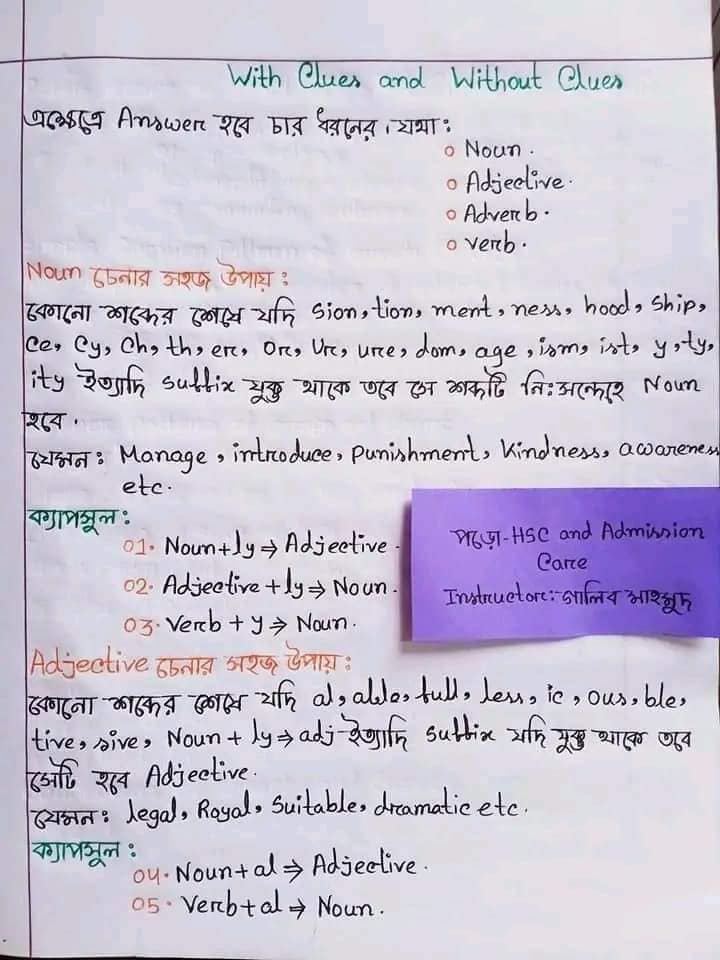 With Clues and Without Clues
এক্ষেত্রে Answer হবে চার ধরনের। যথা:
o Noun.
o Adjective.
o Adverb.
o verb.
Noun চেনার সহজ উপায়:
কোনো শব্দের শেষে যদি sion, tion, ment, ness, hood, ship,
ce, cy, ch, th, er, or, ur, ure, dom, age, ism, ist, y, ty,
ity ইত্যাদি suffix যুক্ত থাকে তবে সে শব্দটি নিঃসন্দেহে Noun
হবে.
যেমন: Manage, introduce, punishment, kindness, awareness
etc.
ক্যাপসুল:
01. Noun+ly ⇒ Adjective.
02. Adjective + ly ⇒ Noun.
03. verb + y ⇒ Noun.
পড়ো-HSC and Admission
Care
Instructor: গালিব মাহমুদ
Adjective চেনার সহজ উপায়:
কোনো শব্দের শেষে যদি al, able, full, less, ic, ous, ble,
tive, sive, Noun + ly ⇒ adj ইত্যাদি suffix যদি যুক্ত থাকে তবে
সেটি হবে Adjective.
যেমন: legal, Royal, Suitable, dramatic etc.
ক্যাপসুল:
04. Noun+al ⇒ Adjective.
05. Verb+al ⇒ Noun.